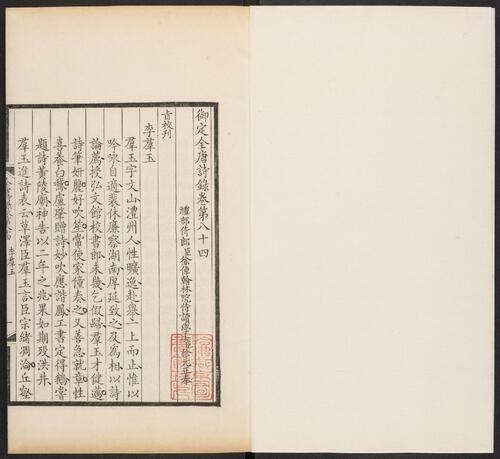 御定全唐詩錄卷第八十四
禮部侍郎臣徐倬翰林院侍讀學士臣徐元正奉
旨校刊
李羣玉
羣玉字文山澧州人性曠逸赴舉一上而止惟以
吟咏自適裴休廉察湖南厚延致之及為相以詩
論薦授弘文館校書郎未幾乞假歸羣玉才健邁
詩筆妍麗好吹笙嘗使家僮奏之又善急就章性
喜養白鵝盧肇贈詩妙吹應諧鳳工書定得鵝嘗
題詩黃陵廟神告以二年之兆果如期歿洪井
羣玉進詩表云草澤臣羣玉言臣宗緒凋淪丘壑
李羣玉
一